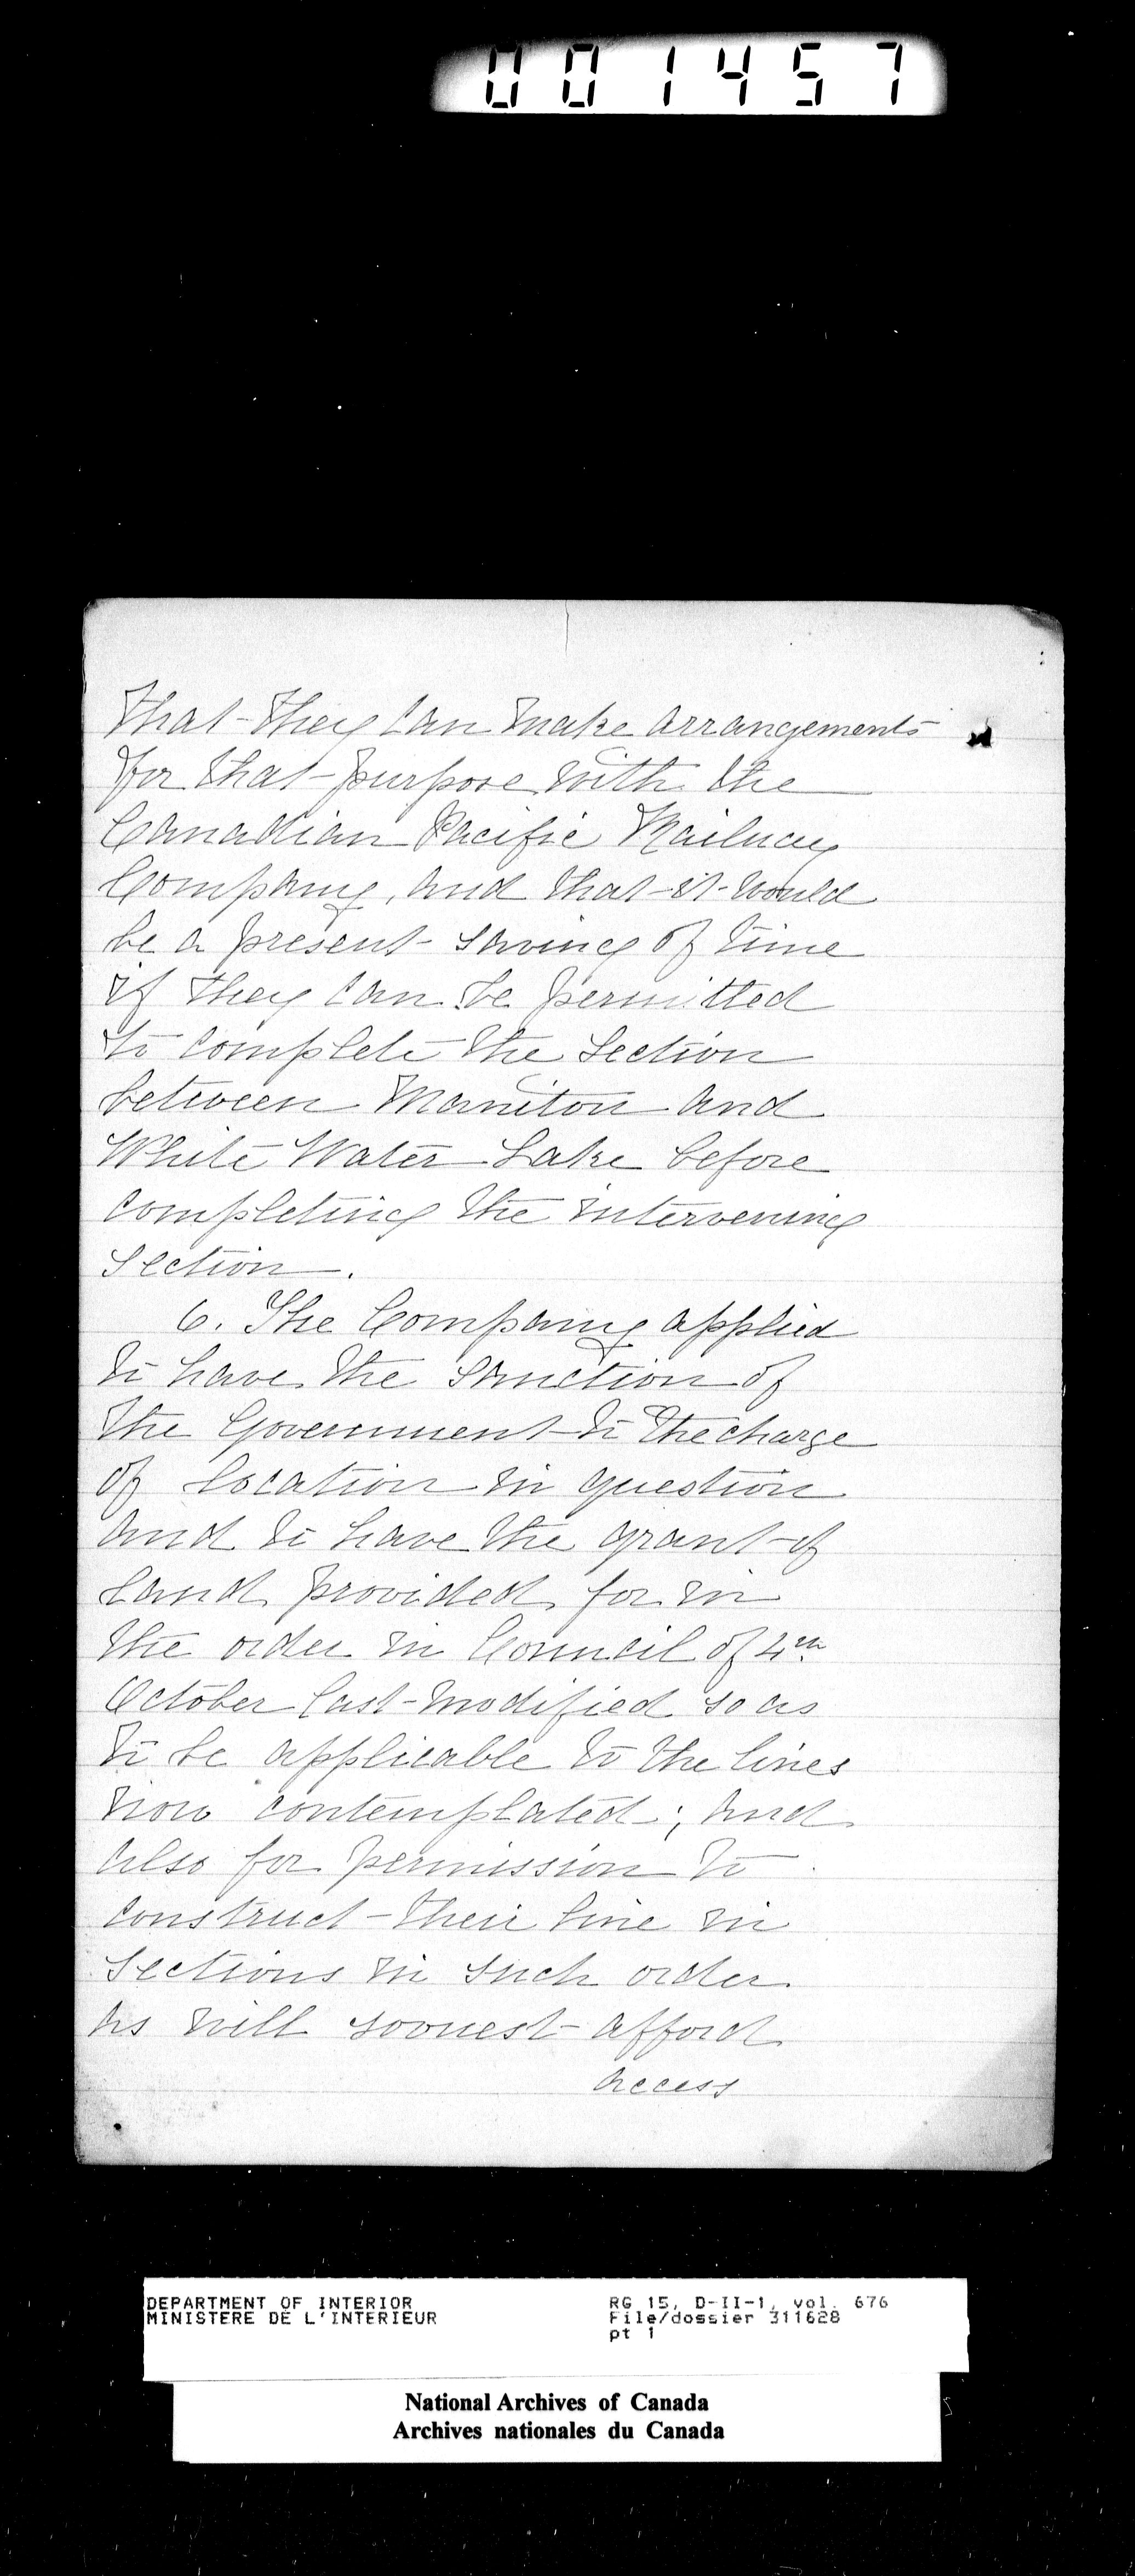 001457
that they can make arrangements
for that purpose with the
Canadian Pacific Railway
Company, and that it would
be a present saving of time
if they can be permitted
to complete the Section
between Manitou and
White Water Lake before
completing the intervening
section.
6. The Company applied
to have the sanction of
the Government to the charge
of location in question
and to have the grant of
land provided for in
the order in Council of 4th
October last modified so as
to be applicable to the lines
now contemplated; and
also for permission to
construct their line in
sections in such order
as will soonest afford
access
DEPARTMENT OF INTERIOR
MINISTERE DE L'INTERIEUR
RG 15, D-II-1, vol. 676
File/dossier 311628
pt 1
National Archives of Canada
Archives nationales du Canada